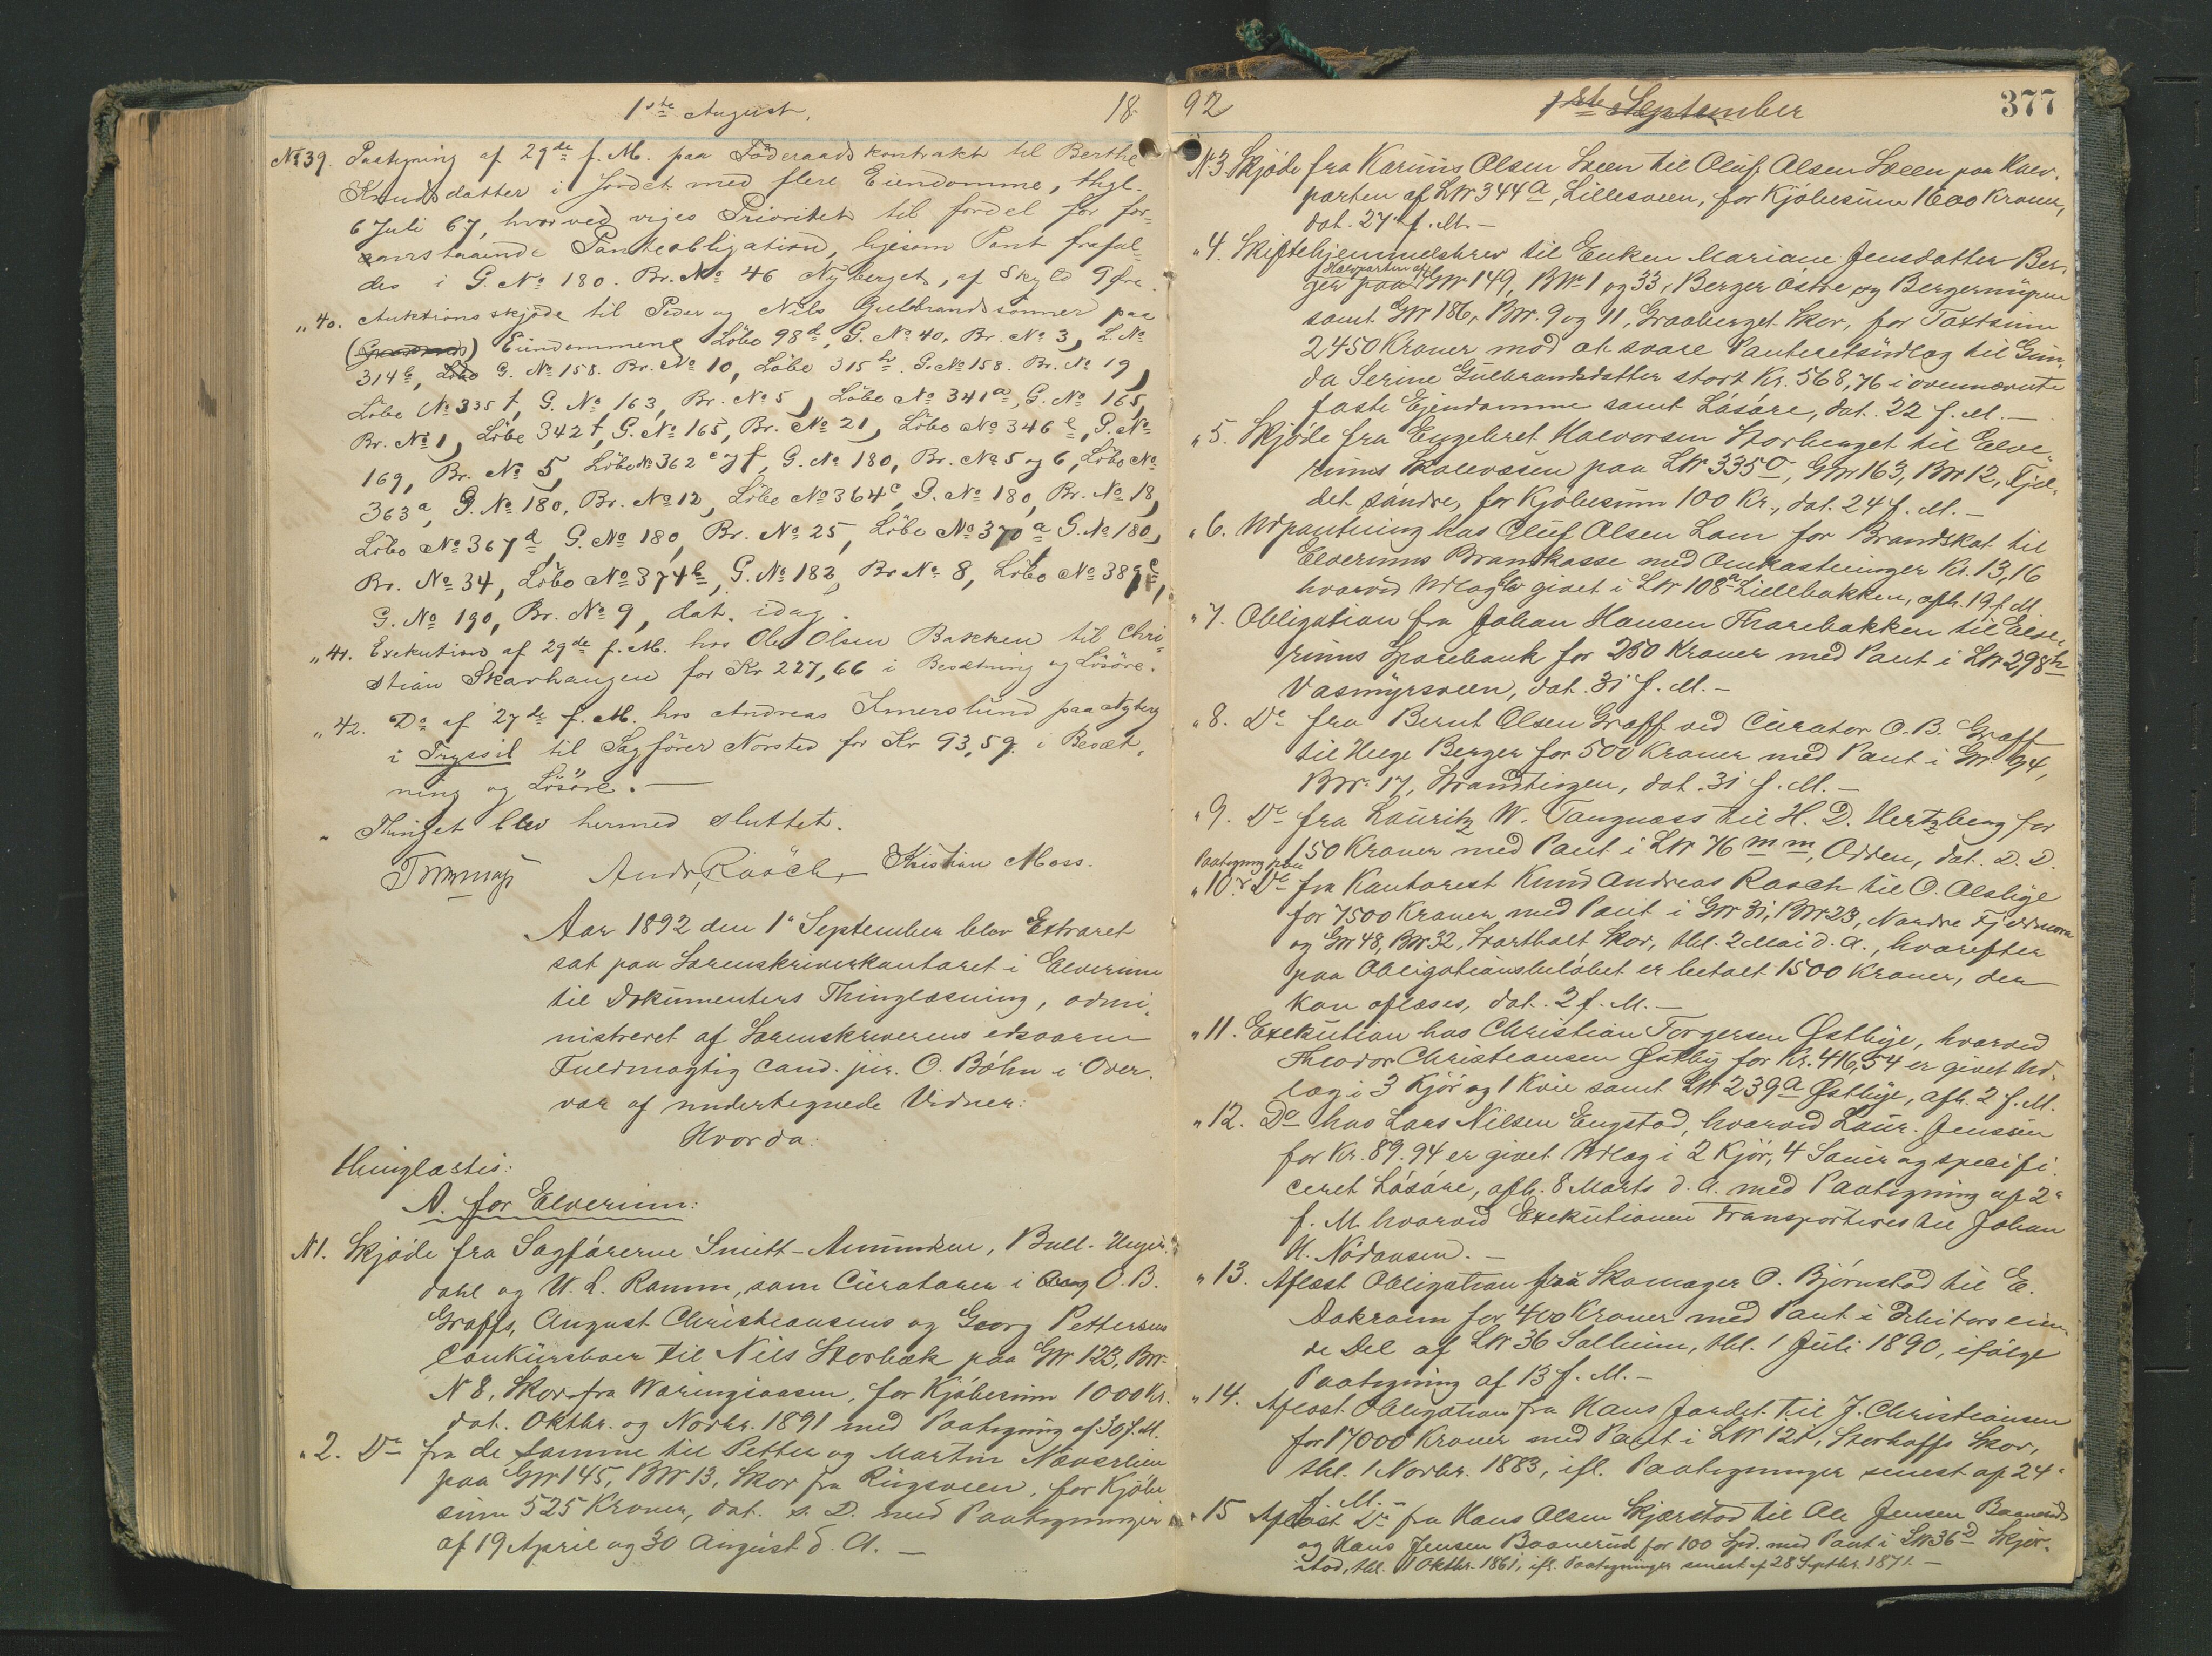 1ste August, 18
No 39. Paategning af 29de f. M. paa Föderaadskontrakt til Berthe
Knudsdatter i Jordet med flere Eiendomme, thgl.
6 Juli 67, hvorved viges Prioritet til fordel for for-
anstaaende Panteobligation, ligesom Pant frafal-
des i G. No 180. Br. No 46 Nyberget, af Skyld 9 Øre.
„ 40. Auktionsskjøde til Peder og Nils Gulbrandssønner paa
Eiendommene Löbe 98d, G. No 40, Br. No 3, L. No
314b, Löbe G. No 158. Br. No 10, Löbe 315b. G. No 158. Br. No 19,
Löbe No 335f, G. No 163, Br. No 5, Löbe No 341a, G. No 165,
Br. No 1, Löbe 342f, G. No 165, Br. No 21, Löbe No 346e, G. No
169, Br. No 5, Löbe No 362e og f, G. No 180, Br. No 5 og 6, Löbe No
363a, G. No 180, Br. No 12, Löbe No 364c, G. No 180, Br. No 18,
Löbe No 367d, G. No 180, Br. No 25, Löbe No 370a G. No 180,
Br. No 34, Löbe No 374b, G. No 182, Br No 8, Löbe No 389e,
G. No 190, Br. No 9, dat. idag.
„ 41. Exekution af 29de f. M. hos Ole Olsen Bakken til Chri-
stian Skarhaugen for Kr 227,66 i Besætning og Lösöre.
„ 42. Do af 27de f. M. hos Andreas Imerslund paa Nyberg
i Trysil til Sagfører Norsted for Kr 93,59. i Besæt-
ning og Lösöre. —
„ Thinget blev hermed sluttet.
Andr. Raäch, Kristian Moss.
Aar 1892 den 1' September blev Extraret
sat paa Sorenskriverkontoret i Elverum
til Dokumenters Thinglæsning, admi-
nistreret af Sorenskriverens edsvorne
Fuldmægtig Cand. jur. O. Böhn i Over-
vær af undertegnede Vidner:
Hvorda:
thinglæstes:
A. for Elverum:
N 1. Skjøde fra Sagførerne Smitt-Amundsen, Bull-Unger-
dahl og U. L. Ramm, som Curatorer i O. B.
Graffs, August Christiansens og Georg Pettersens
Conkursboer til Nils Storbæk paa GNr 123, BNr
N 8, Skov fra Waringsaasen, for Kjøbesum 1000 Kr.
dat. Oktbr. og Novbr. 1891 med Paategning af 30 f. M.
„ 2. Do fra de samme til Petter og Martin Næverlien
paa GNr 145, BNr 13, Skov fra Rugsveen, for Kjøbe
sum 525 Kroner, dat. s. D. med Paategninger
af 19 April og 30 August d. A. —
92 1ste September 377
N 3. Skjøde fra Karinus Olsen Sveen til Oluf Olsen Sveen paa Halv-
parten af LNr 344a, Lillesveen, for Kjøbesum 1600 Kroner,
dat. 27' f. M. —
„ 4. Skiftehjemmelsbrev til Enken Mariane Jensdatter Ber-
ger paa Halvparten af GNr 149, BNr 1 og 33, Berger Østre og Bergermyren
samt GNr 186, BNr. 9 og 11, Graaberget Skov, for Taxtsum
2450 Kroner mod at svare Panteretsudlæg til Gun-
da Serine Gulbrandsdatter stort Kr. 568,76 i ovennævnte
faste Ejendomme samt Løsøre, dat. 22 f. M. —
„ 5. Skjøde fra Engebret Halvorsen Storberget til Elve-
rums Skolevæsen paa LNr 335o, GNr 163, BNr 12, Fjel-
det søndre, for Kjøbesum 100 Kr., dat. 24 f. M. —
„ 6. Udpantning hos Oluf Olsen Lom for Brandskat til
Elverums Brandkasse med Omkostninger Kr. 13,16
hvorved Udlæg er givet i LNr 108a Lillebakken, afh. 19 f. M.
„ 7. Obligation fra Johan Hansen Tharebakken til Elve-
rums Sparebank for 250 Kroner med Pant i LNr 298h
Vasmyrsveen, dat. 31 f. M. —
„ 8. Do fra Bernt Olsen Graff ved Curator O. B. Graff
til Helge Berger for 500 Kroner med Pant i GNr 94,
BNr. 17, Strandtingen, dat. 31 f. M. —
„ 9. Do fra Lauritz W. Tangnæss til H. D. Hertzberg for
150 Kroner med Pant i LNr 76 mm, Odden, dat. D. D.
Paategning paa
„ 10. Do fra Kontorist Knud Andreas Rasch til O. Alslige
for 7500 Kroner med Pant i GNr 31, BNr 23, Nordre Fjeldmora
og GNr 48, BNr 32, Svartholt Skov, thl. 2 Mai d. A., hvorefter
paa Obligationsbeløbet er betalt 1500 Kroner, der
kan aflæses, dat. 2 f. M. —
„ 11. Exekution hos Christian Torgersen Østbye, hvorved
Theodor Christiansen Østby for Kr. 416,54 er givet Ud-
læg i 3 Kjør og 1 Kvie samt LNr 239a Østbye, afh. 2 f. M.
„ 12. Do hos Lars Nilsen Engstad, hvorved Laur. Jensen
for Kr. 89.94 er givet Udlæg i 2 Kjør, 4 Sauer og specifi-
ceret Løsøre, afh. 8 Marts d. A. med Paategning af 2'
f. M. hvorved Exekutionen transporteres til Johan
H. Nödausen. —
„ 13. Aflæst Obligation fra Skomager O. Bjørnstad til E.
Aakrann for 400 Kroner med Pant i Debitors eien-
de Del af LNr 36 Solheim, thl. 1 Juli 1890, ifølge
Paategning af 13 f. M. —
„ 14. Aflæst Obligation fra Hans Jordet til J. Christiansen
for 17000 Kroner med Pant i LNr 121, Storhoffs Skov,
thl. 1 Novbr. 1883, ifl. Paategninger senest af 24'
f. M. —
„ 15 Aflæst Do fra Hans Olsen Skjærstad til Ole Jensen Baanerud
og Hans Jensen Baanerud for 100 Spd. med Pant i LNr 36d Skjær-
stad, thl. 1 Oktbr. 1861, ifl. Paategninger senest af 28 Septbr. 1871. —